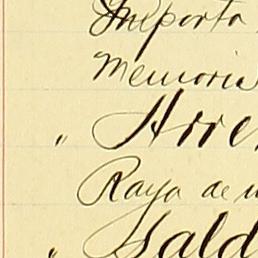 Importa
Memoria
" Arre
Raya de
" Sald